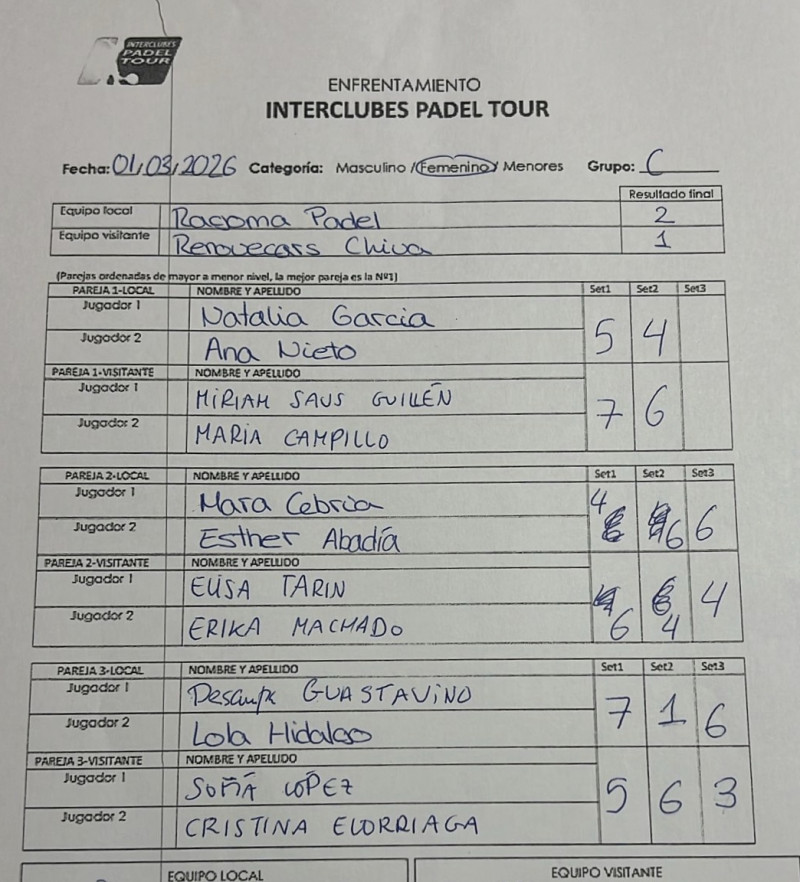 INTERCLUBES
PADEL
TOUR
ENFRENTAMIENTO
INTERCLUBES PADEL TOUR
Fecha: 01/03/2026 Categoría: Masculino / Femenino / Menores Grupo: C
Resultado final
Equipo local Racoma Padel 2
Equipo visitante Renovecars Chiva 1
(Parejas ordenadas de mayor a menor nivel, la mejor pareja es la Nº1)
PAREJA 1-LOCAL NOMBRE Y APELLIDO Set1 Set2 Set3
Jugador 1 Natalia Garcia
5 4
Jugador 2 Ana Nieto
PAREJA 1-VISITANTE NOMBRE Y APELLIDO
Jugador 1 MIRIAM SAUS GUILLÉN
7 6
Jugador 2 MARIA CAMPILLO
PAREJA 2-LOCAL NOMBRE Y APELLIDO Set1 Set2 Set3
Jugador 1 Mara Cebria
4 6 6
Jugador 2 Esther Abadía
PAREJA 2-VISITANTE NOMBRE Y APELLIDO
Jugador 1 ELISA TARIN
6 4 4
Jugador 2 ERIKA MACHADO
PAREJA 3-LOCAL NOMBRE Y APELLIDO Set1 Set2 Set3
Jugador 1 GUASTAVINO
7 1 6
Jugador 2 Lola Hidalgo
PAREJA 3-VISITANTE NOMBRE Y APELLIDO
Jugador 1 SOFÍA LÓPEZ
5 6 3
Jugador 2 CRISTINA ELORRIAGA
EQUIPO LOCAL EQUIPO VISITANTE